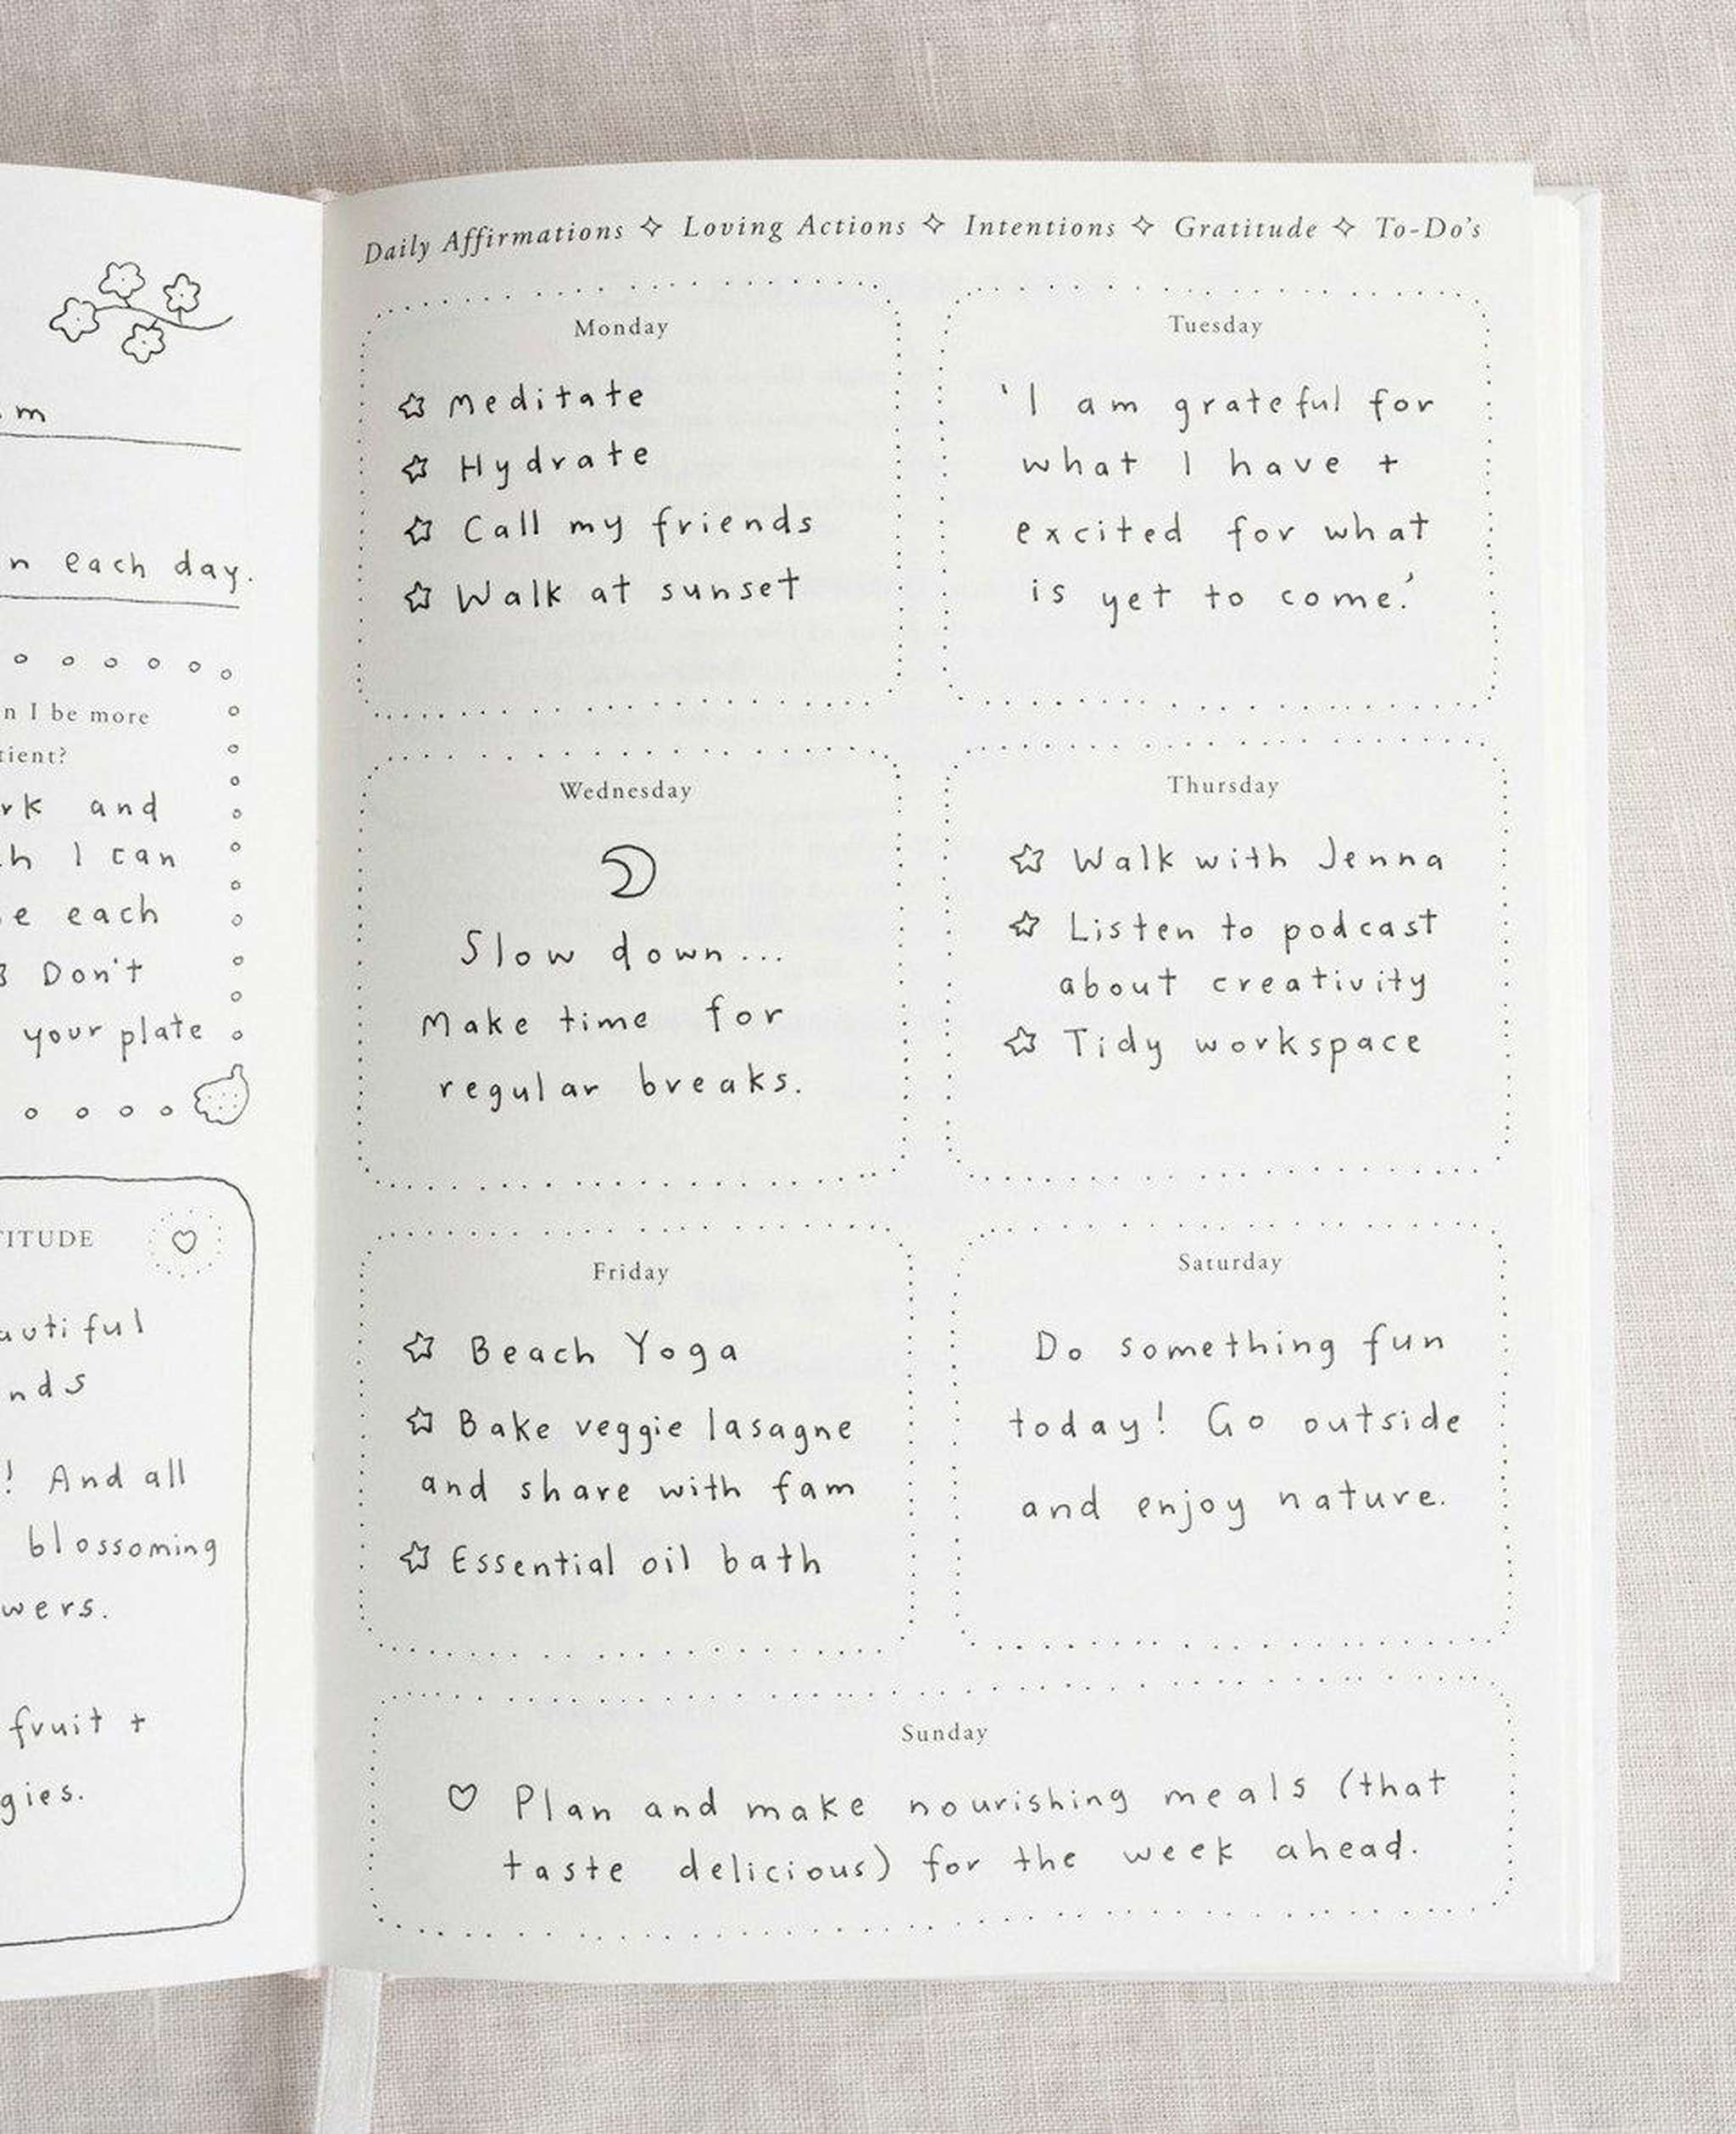 m
n each day.
n I be more
tient?
rk and
h I can
e each
Don't
your plate
TITUDE
autiful
nds
! And all
blossoming
wers.
fruit +
gies.
Daily Affirmations ✧ Loving Actions ✧ Intentions ✧ Gratitude ✧ To-Do's
Monday
Meditate
Hydrate
Call my friends
Walk at sunset
Tuesday
'I am grateful for
what I have +
excited for what
is yet to come.'
Wednesday
Slow down...
Make time for
regular breaks.
Thursday
Walk with Jenna
Listen to podcast
about creativity
Tidy workspace
Friday
Beach Yoga
Bake veggie lasagne
and share with fam
Essential oil bath
Saturday
Do something fun
today! Go outside
and enjoy nature.
Sunday
Plan and make nourishing meals (that
taste delicious) for the week ahead.